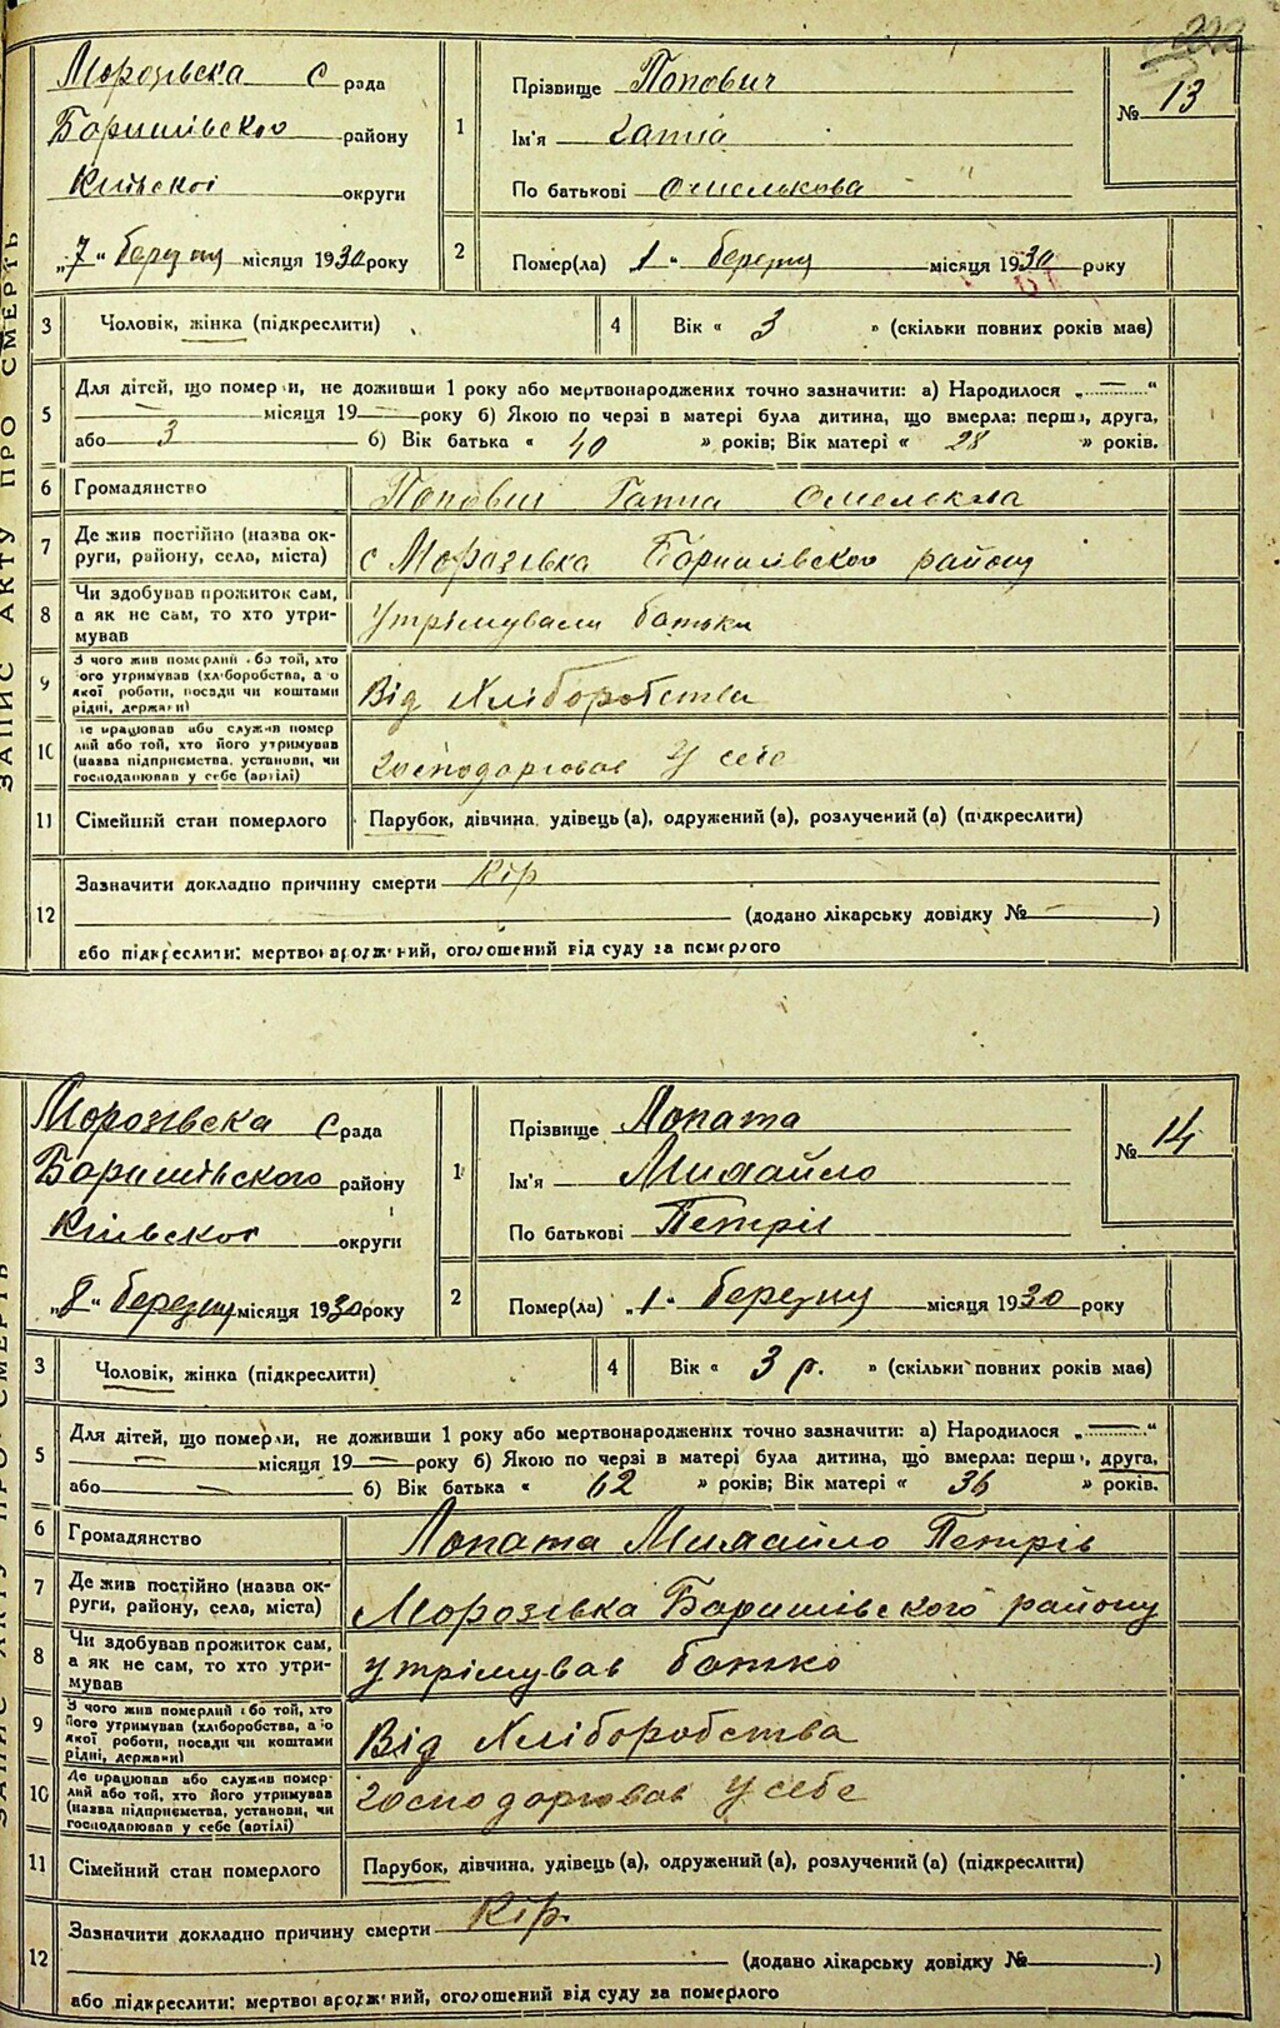 222
Морозівска с рада
Баришівского району
Київскої округи
„7" березня місяця 1930 року
1
Прізвище Попович
Ім'я Ганна
По батькові Омелькова
№ 13
2
Помер(ла) 1 " березня місяця 1930 року
3
Чоловік, жінка (підкреслити)
4
Вік « 3 » (скільки повних років має)
5
Для дітей, що померли, не доживши 1 року або мертвонароджених точно зазначити: а) Народилося „ — "
— місяця 19 — року б) Якою по черзі в матері була дитина, що вмерла: перша, друга,
або 3 б) Вік батька « 40 » років; Вік матері « 28 » років.
6
Громадянство
Попович Ганна Омелькова
7
Де жив постійно (назва ок-
руги, району, села, міста)
с Морозівка Баришівского району
8
Чи здобував прожиток сам,
а як не сам, то хто утри-
мував
Утрімували батьки
9
З чого жив померлий або той, хто
його утримував (хліборобства, а о
якої роботи, посади чи коштами
рідні, держави)
Від Хліборобства
10
Де працював або служив помер
лий або той, хто його утримував
(назва підприємства, установи, чи
господарював у себе (артілі)
Господарював У себе
11
Сімейний стан померлого
Парубок, дівчина, удівець (а), одружений (а), розлучений (а) (підкреслити)
12
Зазначити докладно причину смерти Кір
(додано лікарську довідку № — )
або підкреслити: мертвонароджений, оголошений від суду за померлого
ЗАПИС АКТУ ПРО СМЕРТЬ
Морозівска с рада
Баришівского району
Київскої округи
„8" березня місяця 1930 року
1
Прізвище Лопата
Ім'я Михайло
По батькові Петрів
№ 14
2
Помер(ла) „1" березня місяця 1930 року
3
Чоловік, жінка (підкреслити)
4
Вік « 3 р. » (скільки повних років має)
5
Для дітей, що померли, не доживши 1 року або мертвонароджених точно зазначити: а) Народилося „ — "
— місяця 19 — року б) Якою по черзі в матері була дитина, що вмерла: перша, друга,
або — б) Вік батька « 42 » років; Вік матері « 36 » років.
6
Громадянство
Лопата Михайло Петрів
7
Де жив постійно (назва ок-
руги, району, села, міста)
Морозівка Баришівского району
8
Чи здобував прожиток сам,
а як не сам, то хто утри-
мував
утрімував батько
9
З чого жив померлий або той, хто
його утримував (хліборобства, а о
якої роботи, посади чи коштами
рідні, держави)
Від Хліборобства
10
Де працював або служив помер-
лий або той, хто його утримував
(назва підприємства, установи, чи
господарював у себе (артілі)
Господарював У себе
11
Сімейний стан померлого
Парубок, дівчина, удівець (а), одружений (а), розлучений (а) (підкреслити)
12
Зазначити докладно причину смерти Кір.
(додано лікарську довідку № )
або підкреслити: мертвонароджений, оголошений від суду за померлого